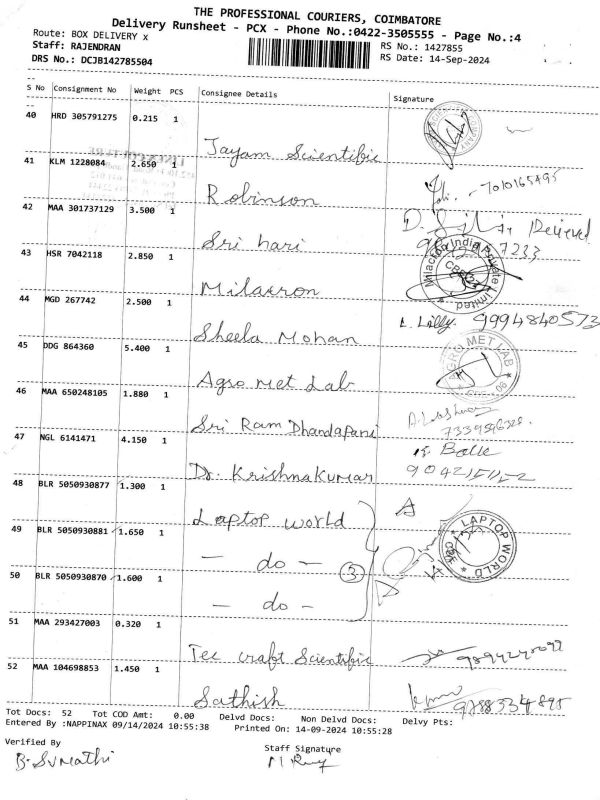 THE PROFESSIONAL COURIERS, COIMBATORE
Delivery Runsheet - PCX - Phone No.:0422-3505555 - Page No.:4
Route: BOX DELIVERY x
RS No.: 1427855
Staff: RAJENDRAN
RS Date: 14-Sep-2024
DRS No.: DCJB142785504
S No Consignment No Weight PCS Consignee Details Signature
40 HRD 305791275 0.215 1 Jayam Scientific
41 KLM 1228084 2.650 1 Robinson
42 MAA 301737129 3.500 1 Sri hari
43 HSR 7042118 2.850 1 Milacron
Milacron India Private Limited
44 MGD 267742 2.500 1 Sheela Mohan L. Lilly. 9994840573
45 DDG 864360 5.400 1 Agro Met Lab
AGRO MET LAB
46 MAA 650248105 1.880 1 Sri Ram Dhandapani
47 NGL 6141471 4.150 1 Dr. Krishnakumar
48 BLR 5050930877 1.300 1 Laptop world
49 BLR 5050930881 1.650 1 - do -
3
LAPTOP WORLD
50 BLR 5050930870 1.600 1 - do -
51 MAA 293427003 0.320 1 Tec craft Scientific
52 MAA 104698853 1.450 1 Sathish 9788334895
Tot Docs: 52 Tot COD Amt: 0.00 Delvd Docs: Non Delvd Docs: Delvy Pts:
Entered By :NAPPINAX 09/14/2024 10:55:38 Printed On: 14-09-2024 10:55:28
Verified By
Staff Signature
B. Sumathi